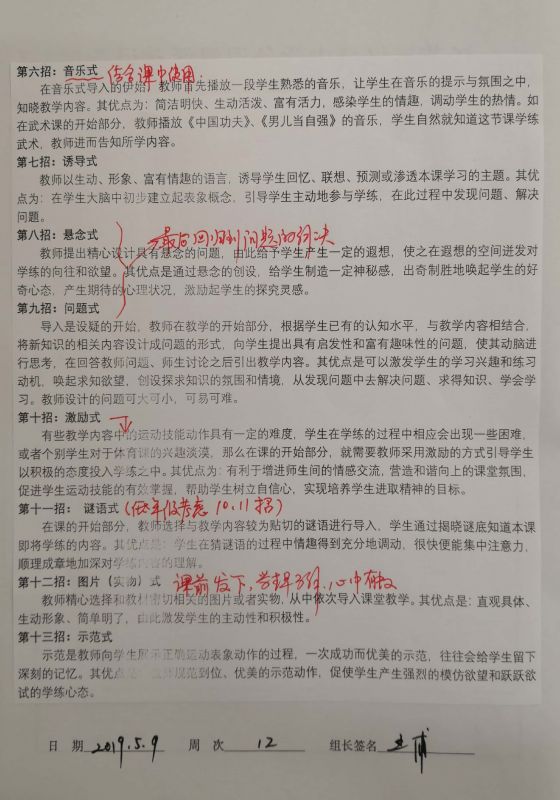 第六招：音乐式 结合课中使用.
在音乐式导入的伊始，教师首先播放一段学生熟悉的音乐，让学生在音乐的提示与氛围之中，
知晓教学内容。其优点为：简洁明快、生动活泼、富有活力，感染学生的情趣，调动学生的热情。如
在武术课的开始部分，教师播放《中国功夫》、《男儿当自强》的音乐，学生自然就知道这节课学练
武术，教师进而告知所学内容。
第七招：诱导式
教师以生动、形象、富有情趣的语言，诱导学生回忆、联想、预测或渗透本课学习的主题。其优
点为：在学生大脑中初步建立起表象概念，引导学生主动地参与学练，在此过程中发现问题、解决
问题。
第八招：悬念式 最后回归到问题的解决
教师提出精心设计具有悬念的问题，由此给予学生产生一定的遐想，使之在遐想的空间迸发对
学练的向往和欲望。其优点是通过悬念的创设，给学生制造一定神秘感，出奇制胜地唤起学生的好
奇心态，产生期待的心理状况，激励起学生的探究灵感。
第九招：问题式
导入是设疑的开始，教师在教学的开始部分，根据学生已有的认知水平，与教学内容相结合，
将新知识的相关内容设计成问题的形式，向学生提出具有启发性和富有趣味性的问题，使其动脑进
行思考，在回答教师问题、师生讨论之后引出教学内容。其优点是可以激发学生的学习兴趣和练习
动机，唤起求知欲望，创设探求知识的氛围和情境，从发现问题中去解决问题、求得知识、学会学
习。教师设计的问题可大可小，可易可难。
第十招：激励式
有些教学内容中的运动技能动作具有一定的难度，学生在学练的过程中相应会出现一些困难，
或者个别学生对于体育课的兴趣淡漠，那么在课的开始部分，就需要教师采用激励的方式引导学生
以积极的态度投入学练之中。其优点为：有利于增进师生间的情感交流，营造和谐向上的课堂氛围，
促进学生运动技能的有效掌握，帮助学生树立自信心，实现培养学生进取精神的目标。
第十一招： 谜语式 (低年级考虑 10、11招)
在课的开始部分，教师选择与教学内容较为贴切的谜语进行导入，学生通过揭晓谜底知道本课
即将学练的内容。其优点是：学生在猜谜语的过程中情趣得到充分地调动，很快便能集中注意力，
顺理成章地加深对学练内容的理解。
第十二招：图片（实物）式 课前发下，
教师精心选择和教材密切相关的图片或者实物，从中依次导入课堂教学。其优点是：直观具体、
生动形象、简单明了，由此激发学生的主动性和积极性。
第十三招：示范式
示范是教师向学生展示正确运动表象动作的过程，一次成功而优美的示范，往往会给学生留下
深刻的记忆。其优点是：教师规范到位、优美的示范动作，促使学生产生强烈的模仿欲望和跃跃欲
试的学练心态。
日 期 2019.5.9 周 次 12 组长签名